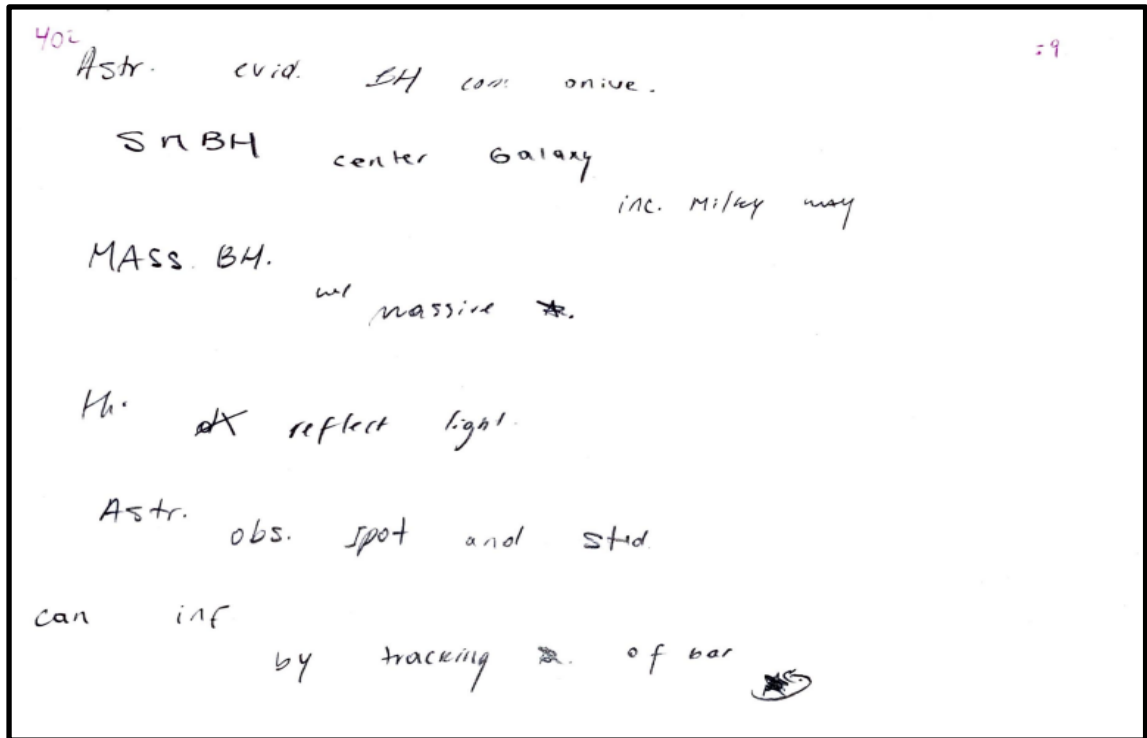 402 :9
Astr. evid. BH com. onive.
SMBH center Galaxy
inc. Milky way
MASS. BH.
massive
H. reflect light.
Astr. obs. spot and sted.
can inf
by tracking of bar